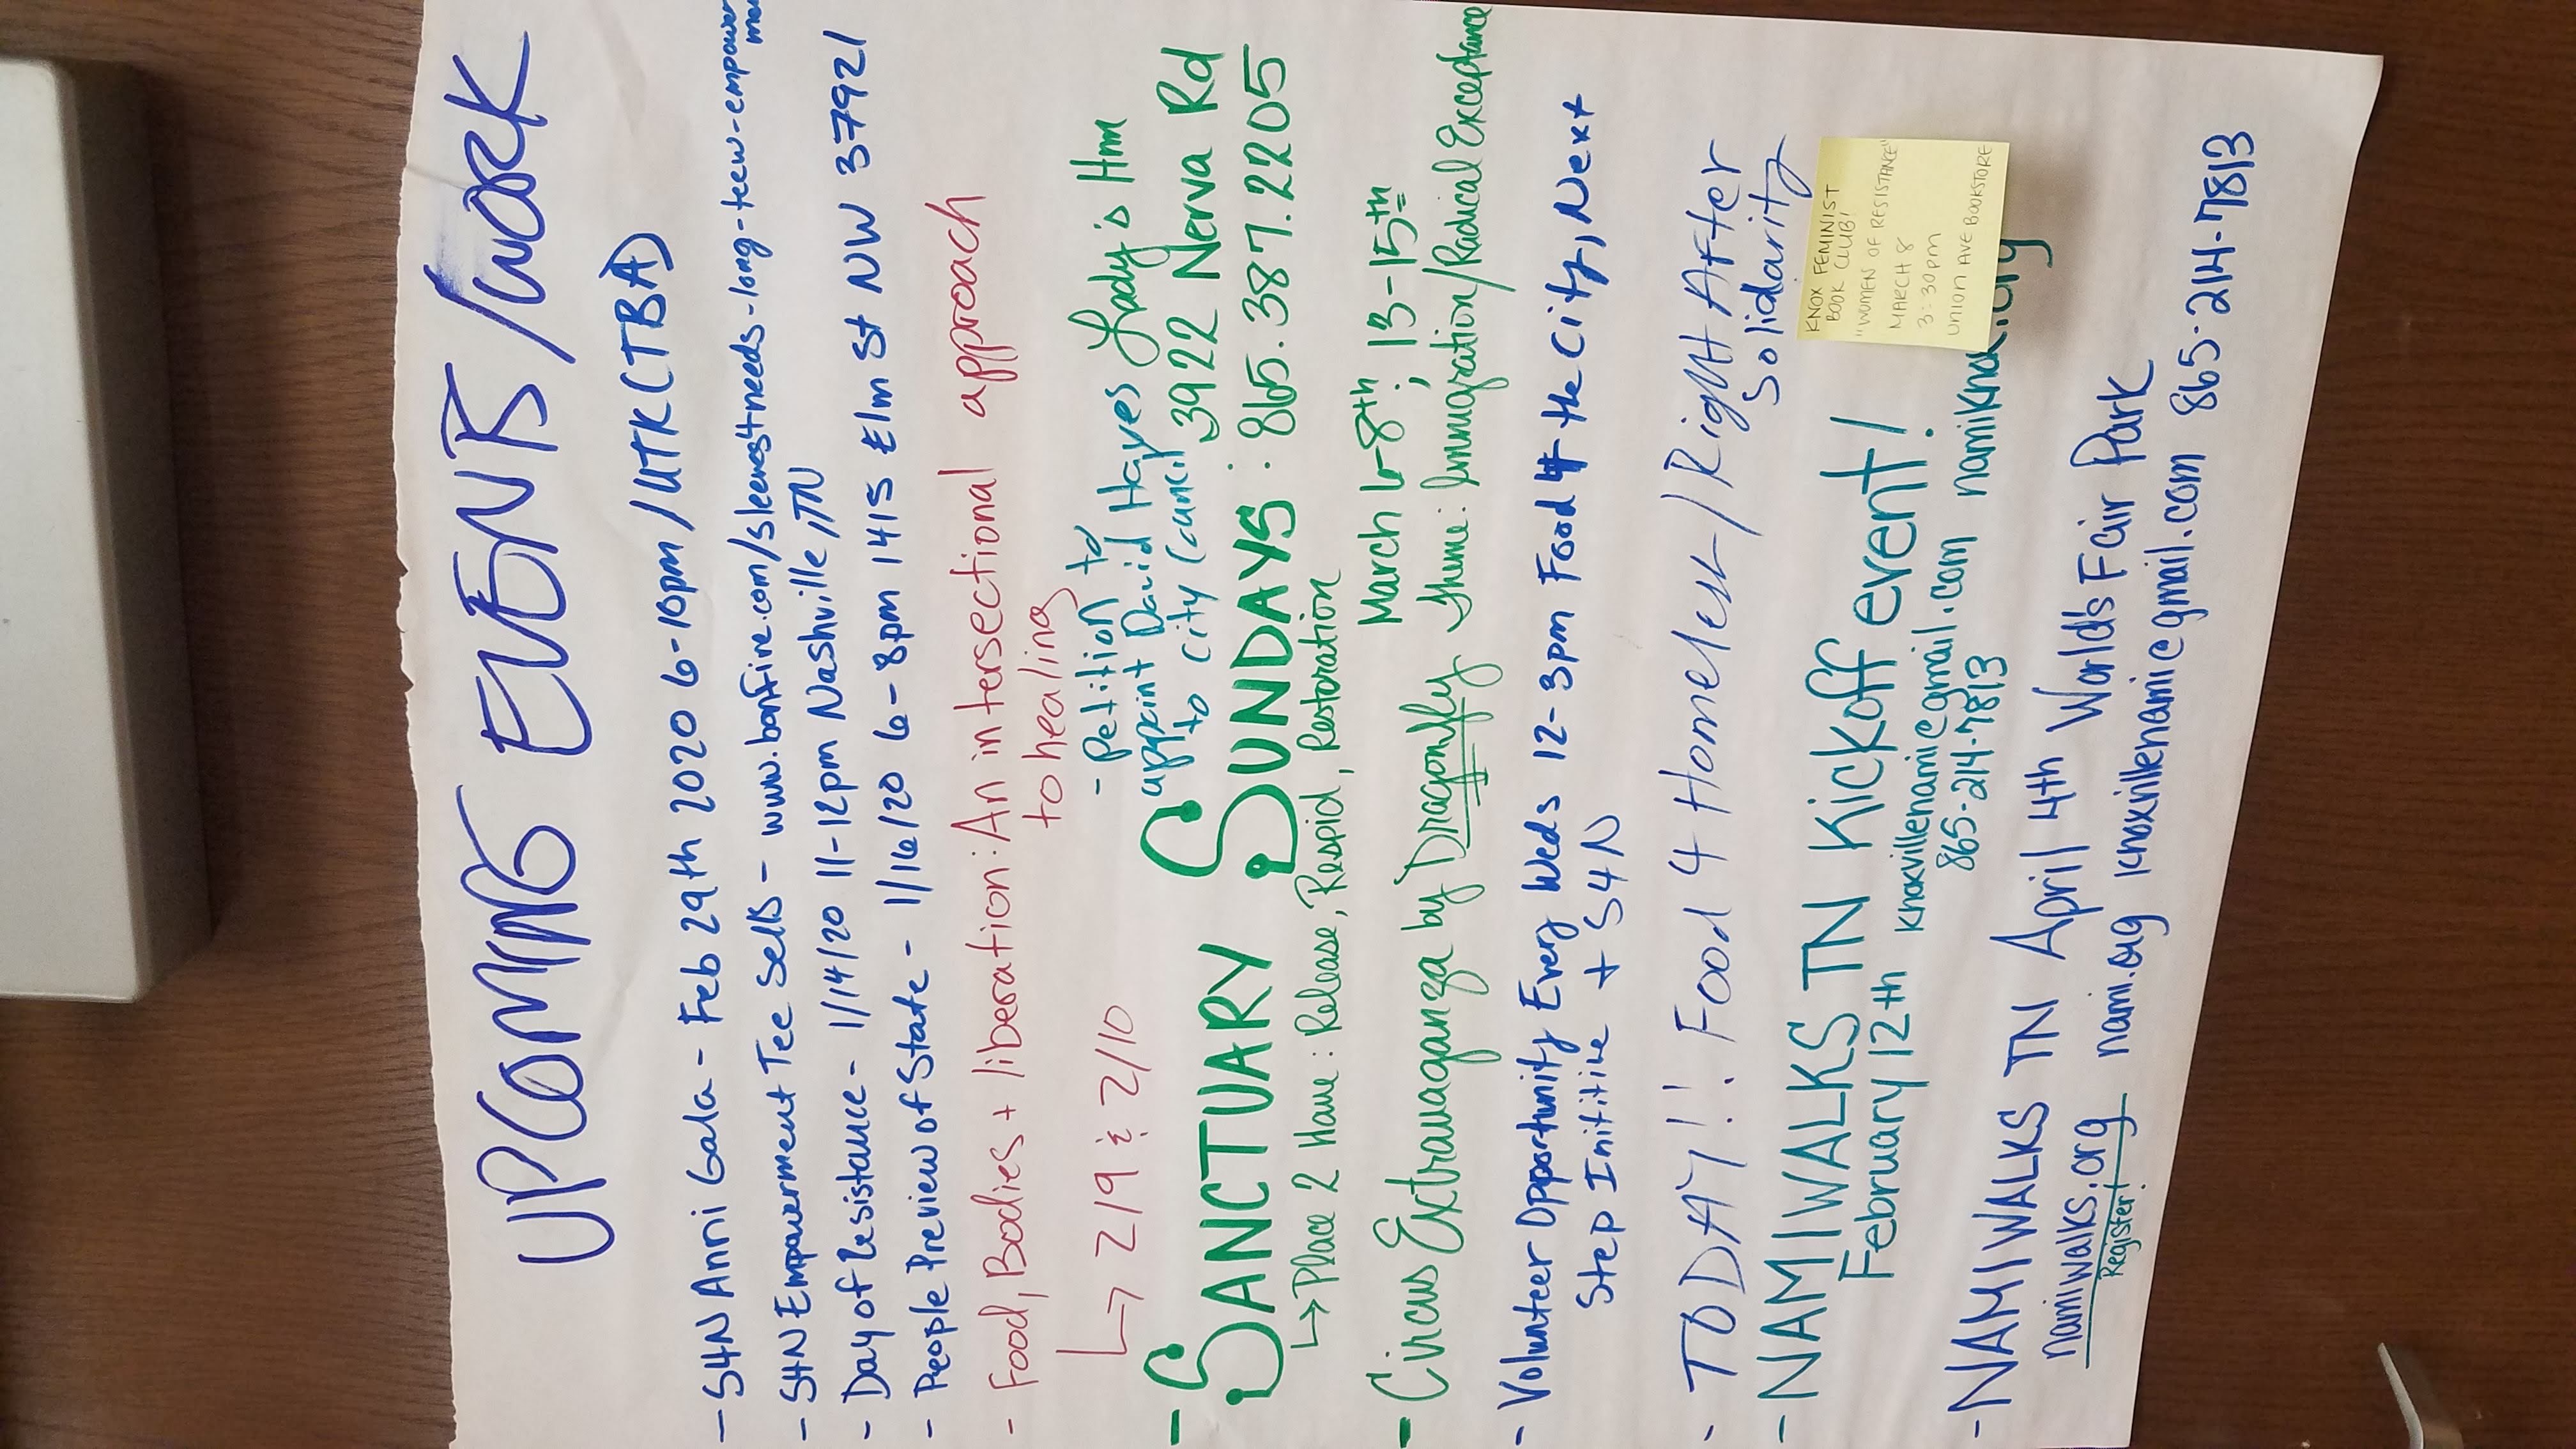 UPCOMING EVENTS/WORK
- S4N Anni Gala - Feb 29th 2020 6-10pm / UTK (TBA)
- S4N Empowerment Tee Sells - www.bonfire.com/sleeves4needs-long-teew-empower
- Day of Resistance - 1/14/20 11-12pm Nashville, TN
- People Preview of State - 1/16/20 6-8pm 1415 Elm St NW 37921
- Food, Bodies + liberation: An intersectional approach
to healing
↳ 2/9 & 2/10
- Petition to
appoint David Hayes
to City Council
Lady's Hnm
3922 Nerva Rd
- SANCTUARY SUNDAYS : 865.387.2205
↳ Place 2 Have: Release, Respid, Restoration
March 6-8th; 13-15th
- Circus Extravaganza by Dragonfly Theme: Immigration/Radical Exceptance
- Volunteer Opportunity Every Weds 12-3pm Food 4 the City, Next
Step Inititive + S4N
- TODAY!! Food 4 Homeless / Right After
Solidarity
- NAMIWALKS TN Kickoff event!
February 12th knoxvillenami@gmail.com namiknox.org
865-214-7813
KNOX FEMINIST
BOOK CLUB!
"WOMEN OF RESISTANCE"
MARCH 8
3:30pm
UNION AVE BOOKSTORE
- NAMIWALKS TN April 4th World's Fair Park
namiwalks.org nami.org knoxvillenami@gmail.com 865-214-7813
Register!